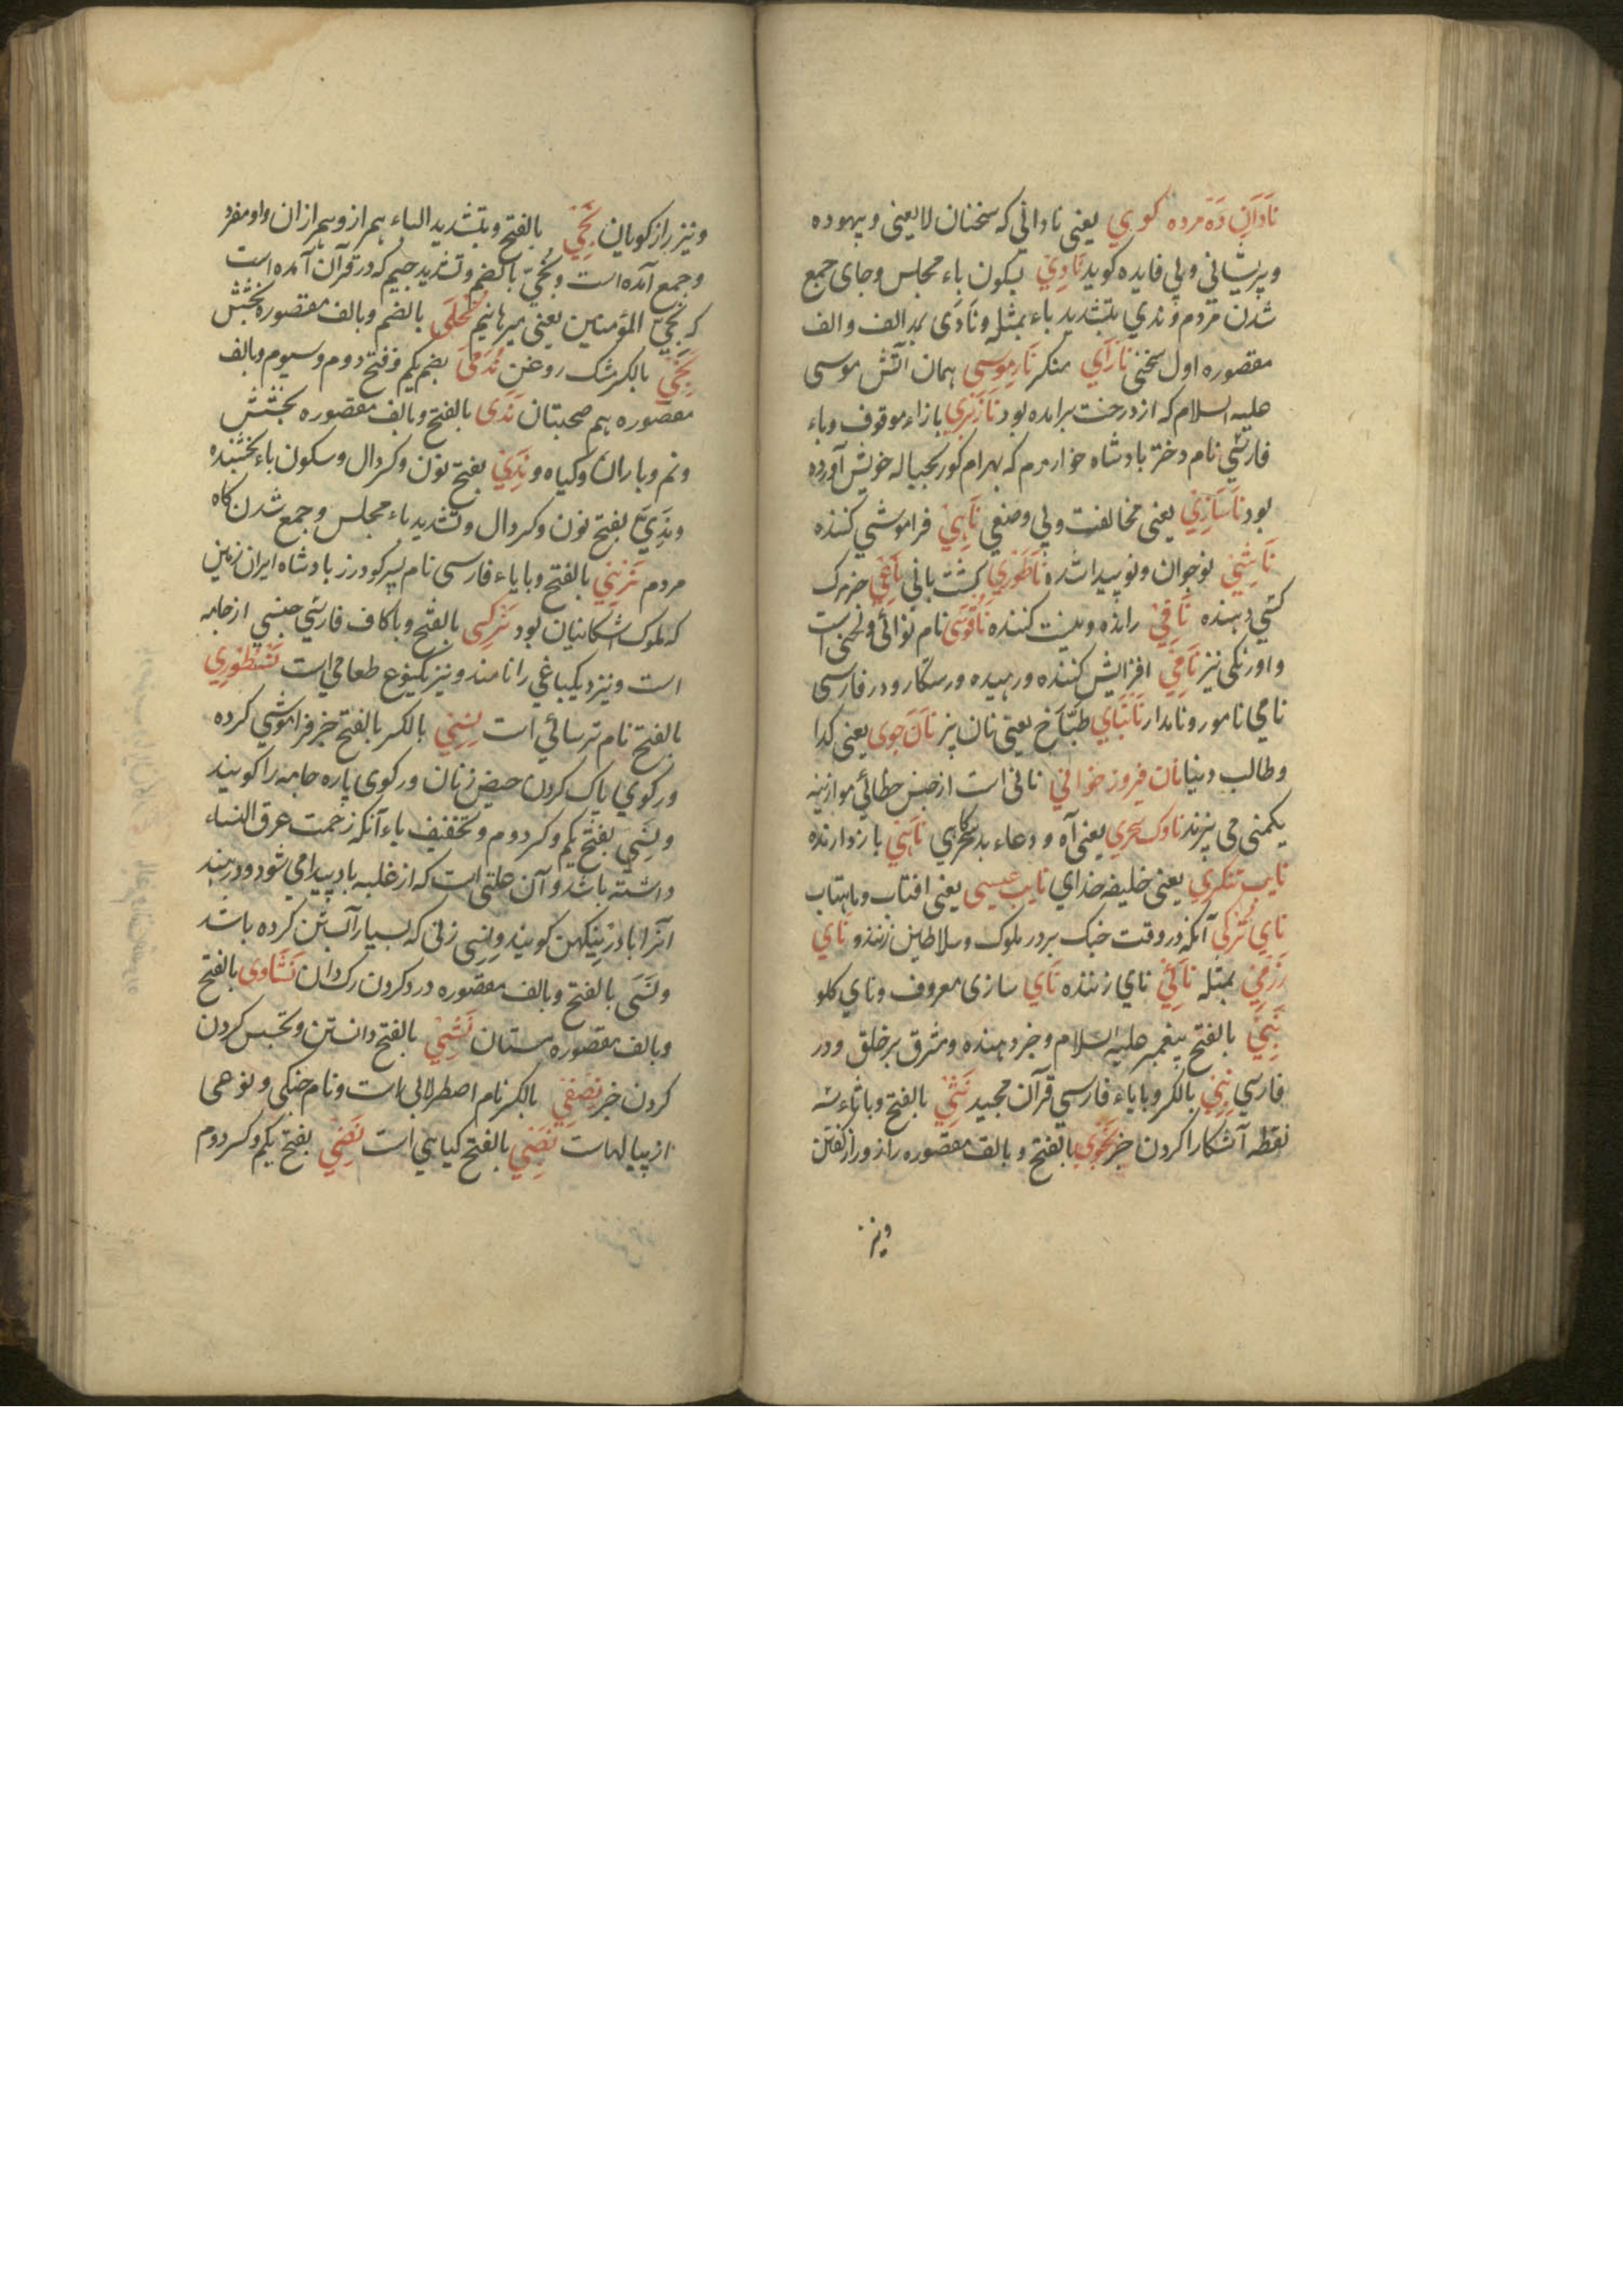 نادان ده مرده کوی یعنی نادانی که سخنان لایعنی و بیهوده
و پریشانی و بی فایده کوید نادی بسکون یاء مجلس و جای جمع
شدن مردم و ندی بتشدید یاء بمثله و نادی بمد الف و الف
مقصوره اول سخنی نارای منکر نار موسی همان آتش موسی
علیه السلام که از درخت برامده بود نازپری بازاء موقوف و باء
فارسی نام دختر بادشاه خوارزم که بهرام کور بحباله خویش آورده
بود ناسازی یعنی مخالفت و بی وضعی ناسی فراموشی کننده
ناشی نوجوان و نوپیدا شده ناطوری کشت بانی ناعی خبر مرک
کسی دهنده نافی رانده و نیست کننده ناقوسی نام نوائی و لحنی است
و اورنکی نیز نامی افزایش کننده و رهیده و رستکار و در فارسی
نامی نامور و نامدار نانبای طباخ یعنی نان پز نان جوی یعنی کدا
و طالب دنیا نان فیروز خوانی نانی است از جنس خطائی موازنه
یکمنی می پزند ناوک سحری یعنی آه و دعاء بد سحرکاهی ناهی بازدارنده
نایب تنکری یعنی خلیفه خدای نایب عیسی یعنی افتاب و ماهتاب
نای ترکی آنکه در وقت جنک بر در ملوک و سلاطین زنند و نای
رزمی بمثله نائی نای زننده نای سازی معروف و نای کلو
نبی بالفتح پیغمبر علیه السلام و خبر دهنده و مشرق بر خلق و در
فارسی نبی بالکسر و بایاء فارسی قرآن مجید نثی بالفتح و باثاء سه
نقطه آشکارا کردن خبر نجوی بالفتح و بالف مقصوره راز و راز کفتن
و نیز
و نیز راز کویان نجی بالفتح و بتشدید الیاء همراز و همرازان و او مفرد
و جمع آمده است و نجی بالضم و تشدید جیم که در قرآن آمده است
که نجی المؤمنین یعنی میرهانیم نحلی بالضم و بالف مقصوره بخشش
نحی بالکسر مشک روغن ندمی بضم یکم و فتح دوم و سیوم و بالف
مقصوره هم صحبتان ندی بالفتح و بالف مقصوره بخشش
و نم و باران و کیاه و ندی بفتح نون و کسر دال و سکون یاء بخشنده
و ندی بفتح نون و کسر دال و تشدید یاء مجلس و جمع شدن کاه
مردم نرسی بالفتح و بایاء فارسی نام پسر کودرز بادشاه ایران زمین
که ملوک اشکانیان بود نرکسی بالفتح و باکاف فارسی جنسی از جامه
است و نیز دیکپاغی را نامند و نیز یکنوع طعامی است نسطوری
بالفتح نام ترسائی است نسی بالکسر بالفتح چیز فراموشی کرده
و رکوی پاک کردن حیض زنان و رکوی پاره جامه را کویند
و نسی بفتح یکم و کسر دوم و تخفیف یاء آنکه زحمت عرق النساء
داشته باشد و آن علتی است که از غلبه باد پیدا می شود و در هند
آنرا باد کویند و نسی زنی که بسیار آبستن کرده باشد
و نسی بالفتح و بالف مقصوره درد کردن رک ران نشاوی بالفتح
و بالف مقصوره مستان نشی بالفتح دانستن و تجسس کردن
کردن خبر نصفی بالکسر نام اصطرلابی است و نام جنکی و نوعی
از پیالهاست نصی بالفتح کیاهی است نضی بفتح یکم و کسر دوم